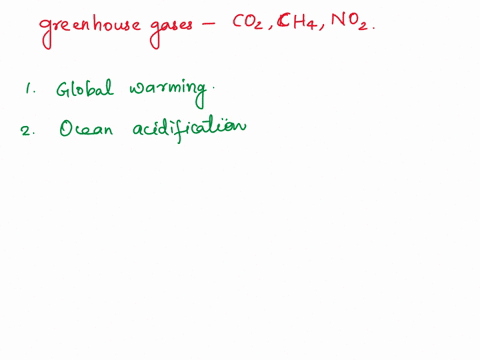 greenhouse gases - CO2, CH4, NO2.
1. Global warming.
2. Ocean acidification